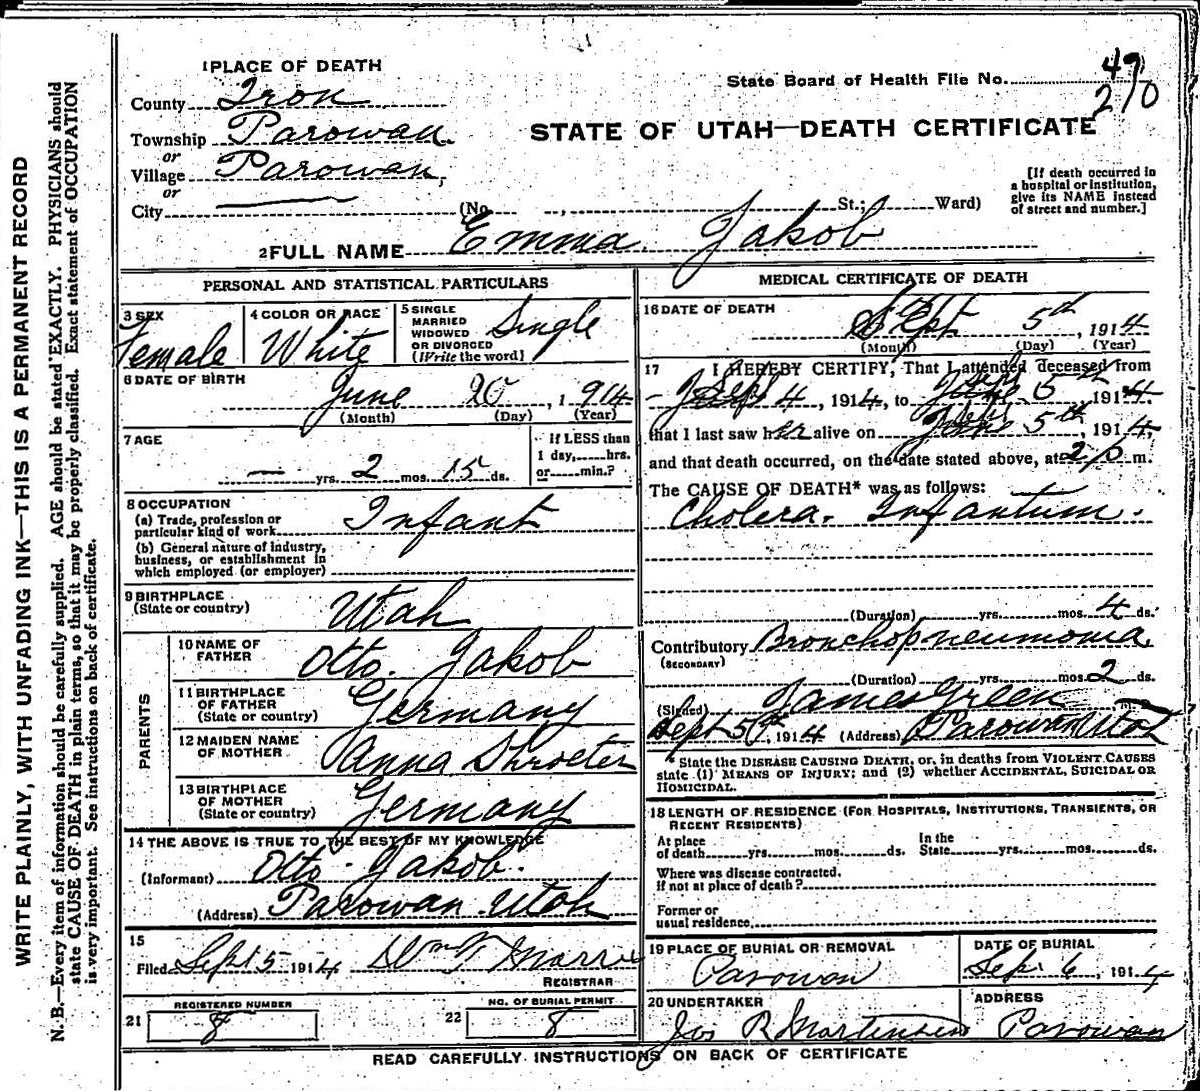 WRITE PLAINLY, WITH UNFADING INK—THIS IS A PERMANENT RECORD
N. B.—Every item of information should be carefully supplied. AGE should be stated EXACTLY. PHYSICIANS should
state CAUSE OF DEATH in plain terms, so that it may be properly classified. Exact statement of OCCUPATION
is very important. See instructions on back of certificate.
1 PLACE OF DEATH
County Iron
Township Parowan
or
Village Parowan,
or
City
State Board of Health File No. 49
210
STATE OF UTAH—DEATH CERTIFICATE
(No. , St.; Ward)
[If death occurred in
a hospital or institution,
give its NAME instead
of street and number.]
2 FULL NAME Emma Jakob
PERSONAL AND STATISTICAL PARTICULARS
3 SEX
Female
4 COLOR OR RACE
White
5 SINGLE
MARRIED
WIDOWED
OR DIVORCED
(Write the word)
Single
6 DATE OF BIRTH
June 20, 1914
(Month) (Day) (Year)
7 AGE
— yrs. 2 mos. 15 ds.
If LESS than
1 day, hrs.
or min.?
8 OCCUPATION
(a) Trade, profession or
particular kind of work Infant
(b) General nature of industry,
business, or establishment in
which employed (or employer)
9 BIRTHPLACE
(State or country)
Utah
PARENTS
10 NAME OF
FATHER
Otto. Jakob
11 BIRTHPLACE
OF FATHER
(State or country)
Germany
12 MAIDEN NAME
OF MOTHER
Anna Shroeter
13 BIRTHPLACE
OF MOTHER
(State or country)
Germany
14 THE ABOVE IS TRUE TO THE BEST OF MY KNOWLEDGE
(Informant) Otto Jakob.
(Address) Parowan Utah
15
Filed Sept 5 1914 Wm
REGISTRAR
REGISTERED NUMBER
21 8
NO. OF BURIAL PERMIT
22 8
MEDICAL CERTIFICATE OF DEATH
16 DATE OF DEATH
Sept 5th, 1914
(Month) (Day) (Year)
17 I HEREBY CERTIFY, That I attended deceased from
Sept 4, 1914, to Sept 5th 1914.
that I last saw her alive on Sept 5th, 1914,
and that death occurred, on the date stated above, at m.
The CAUSE OF DEATH* was as follows:
Cholera. Infantum.
(Duration) yrs. mos. 4 ds.
Contributory Bronchopneumonia
(SECONDARY)
(Duration) yrs. mos. 2 ds.
(Signed) James Green
Sept 5th, 1914 (Address) Parowan Utah
* State the DISEASE CAUSING DEATH, or, in deaths from VIOLENT CAUSES
state (1) MEANS OF INJURY; and (2) whether ACCIDENTAL, SUICIDAL OR
HOMICIDAL.
18 LENGTH OF RESIDENCE (FOR HOSPITALS, INSTITUTIONS, TRANSIENTS, OR
RECENT RESIDENTS)
At place
of death yrs. mos. ds.
In the
State yrs. mos. ds.
Where was disease contracted.
if not at place of death?
Former or
usual residence
19 PLACE OF BURIAL OR REMOVAL
Parowan
DATE OF BURIAL
Sep 6, 1914
20 UNDERTAKER
Jos R
ADDRESS
Parowan
READ CAREFULLY INSTRUCTIONS ON BACK OF CERTIFICATE